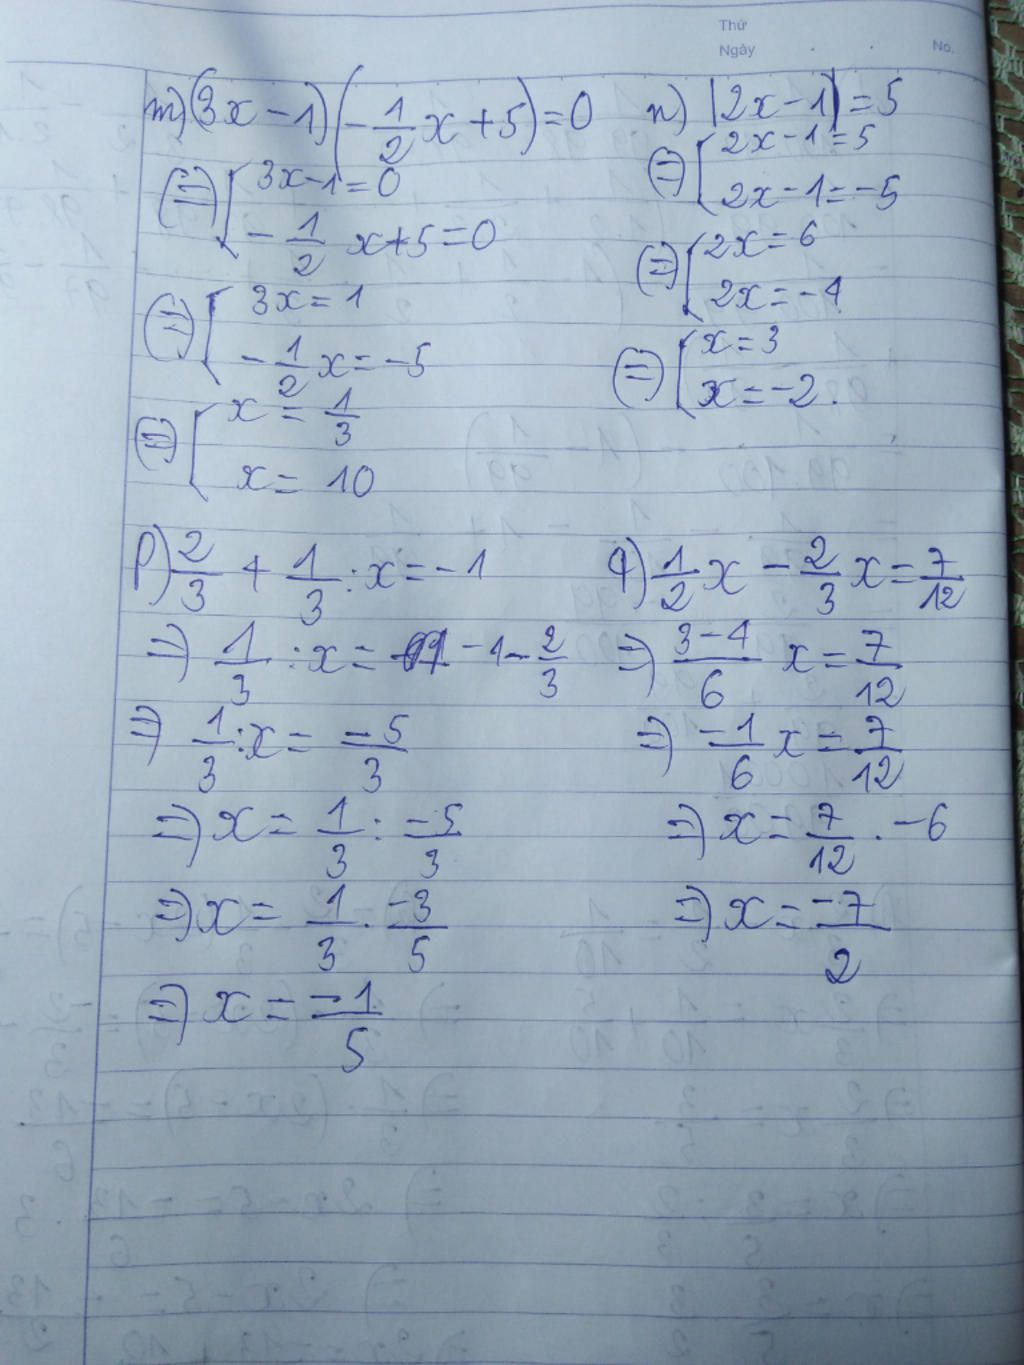 Thứ
Ngày No.
m) (3x - 1) (-1/2 x + 5) = 0
(=) [ 3x - 1 = 0
-1/2 x + 5 = 0
(=) [ 3x = 1
-1/2 x = -5
(=) [ x = 1/3
x = 10
n) |2x - 1| = 5
(=) [ 2x - 1 = 5
2x - 1 = -5
(=) [ 2x = 6
2x = -4
(=) [ x = 3
x = -2.
p) 2/3 + 1/3 : x = -1
=) 1/3 : x = -1 - 2/3
=) 1/3 : x = -5/3
=) x = 1/3 : -5/3
=) x = 1/3 . -3/5
=) x = -1/5
q) 1/2 x - 2/3 x = 7/12
=) 3-4/6 x = 7/12
=) -1/6 x = 7/12
=) x = 7/12 . -6
=) x = -7/2